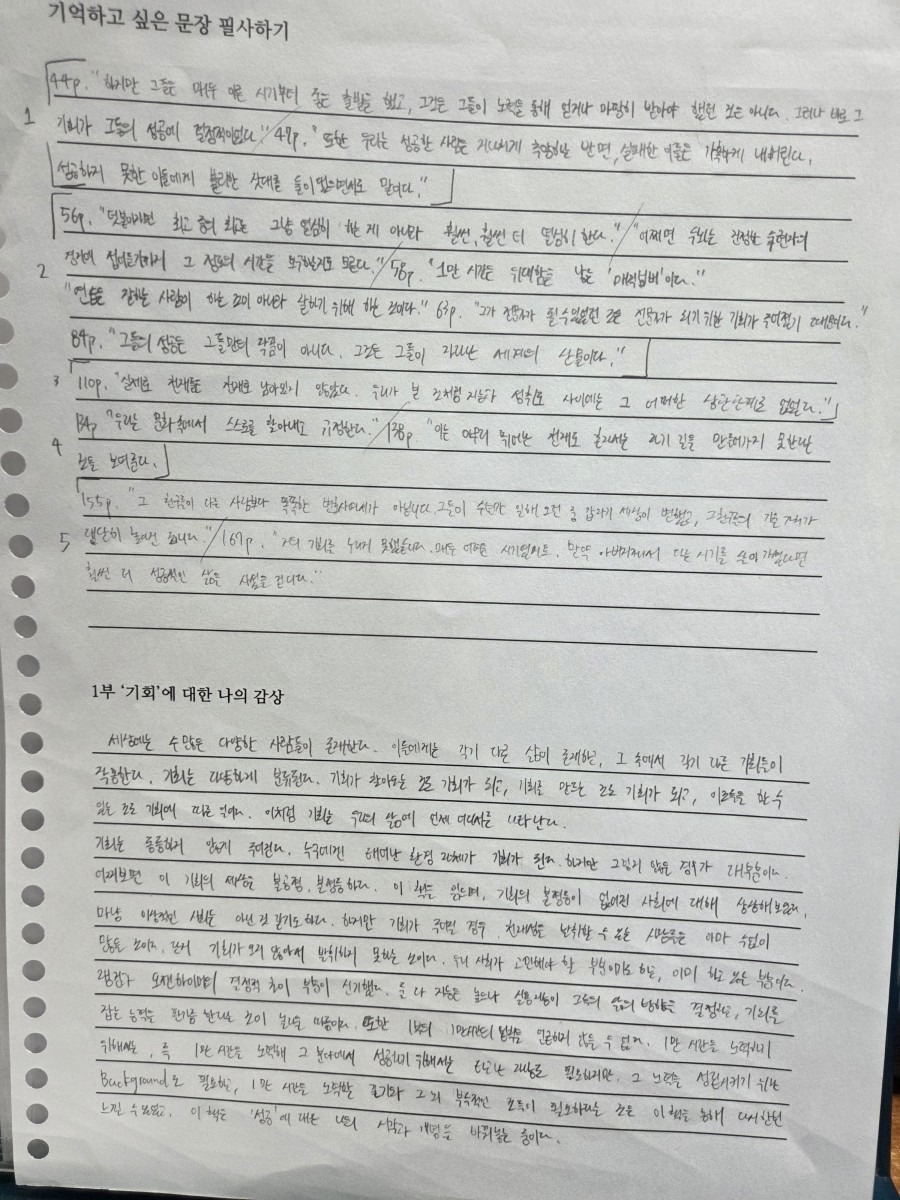 기억하고 싶은 문장 필사하기
44p. "하지만 그들은 매우 이른 시기부터 좋은 출발을 했고, 그것은 그들이 노력을 통해 얻거나 마땅히 받아야 했던 것은 아니다. 그러나 바로 그
1 기회가 그들의 성공에 결정적이었다." / 47p. "또한 우리는 성공한 사람은 지나치게 추앙하는 반면, 실패한 이들은 가혹하게 내버린다.
성공하지 못한 이들에게 불리한 잣대를 들이댔으면서도 말이다."
56p. "덧붙이자면 최고 중의 최고는 그냥 열심히 하는 게 아니라 훨씬, 훨씬 더 열심히 한다." / "어쩌면 두뇌는 진정한 숙련자의
2 경지에 접어들기까지 그 정도의 시간을 요구하는지도 모른다." / 58p. "1만 시간은 위대함을 낳는 '매직넘버'이다."
"연습은 잘하는 사람이 하는 것이 아니라 잘하기 위해 하는 것이다." 63p. "그가 전문가가 될 수 있었던 것은 전문가가 되기 위한 기회가 주어졌기 때문이다."
84p. "그들의 성공은 그들만의 작품이 아니다. 그것은 그들이 자라난 세계의 산물이다."
3 110p. "실제로 천재들은 천재로 남아있지 않았다. 우리가 본 것처럼 지능과 성취도 사이에는 그 어떠한 상관관계도 없었다."
134p "우리는 문화 속에서 스스로를 찾아내고 규정한다." / 138p. "이는 아무리 뛰어난 천재도 혼자서는 자기 길을 만들어가지 못한다는
4 것을 보여준다.
155p. "그 친구들이 다른 사람보다 똑똑한 변호사여서가 아닙니다. 그들이 수년간 일해 오던 중 갑자기 세상이 변했고, 그 친구들의 기술 가치가
5 대단히 높아진 겁니다." / 167p. "거의 기회를 누리지 못했습니다. 매우 어려운 시기였어요. 만약 아버지께서 다른 시기를 손에 거머쥐었다면
훨씬 더 성공적인 삶을 사셨을 겁니다."
1부 '기회'에 대한 나의 감상
세상에는 수많은 다양한 사람들이 존재한다. 이들에게는 각기 다른 삶이 존재하고, 그 속에서 각기 다른 기회들이
작용한다. 기회는 다양하게 분류된다. 기회가 찾아오는 것도 기회가 되고, 기회를 만드는 것도 기회가 되고, 이로움을 한 수
있는 것도 기회에 따른 것이다. 이처럼 기회는 우리의 삶에 언제 어디서든 나타난다.
기회는 동등하지 않게 주어진다. 누구에겐 태어난 환경 자체가 기회가 된다. 하지만 그렇지 않은 경우가 대부분이다.
어찌보면 이 기회의 세상은 불공정, 불평등하다. 이 책을 읽으며, 기회의 불평등이 없어진 사회에 대해 상상해보았다.
마냥 이상적인 사회는 아닌 것 같기도 하다. 하지만 기회가 주어질 경우, 천재성을 발휘할 수 있는 사람들은 아마 수없이
많을 것이다. 단지 기회가 오지 않아서 발휘하지 못하는 것이다. 우리 사회가 고민해야 할 부분이기도 하고, 이미 하고 있는 부분이다.
랭건과 오펜하이머의 결정적 차이 부분이 신기했다. 둘 다 지능은 높으나 실용지능이 그들의 삶의 방향을 결정하고, 기회를
잡는 능력을 판가름 한다는 것이 놀라울 따름이다. 또한 1부의 1만시간의 법칙을 언급하지 않을 수 없다. 1만 시간을 노력하기
위해서는, 즉 1만 시간을 노력해 그 분야에서 성공하기 위해서는 타고난 재능도 필요하지만, 그 노력을 성립시키기 위한
Background도 필요하고, 1만 시간을 노력할 끈기와 그 외 부수적인 것들이 필요하다는 것을 이 책을 통해 다시한번
느낄 수 있었고, 이 책은 '성공'에 대한 나의 시각과 개념을 바꿔놓는 중이다.